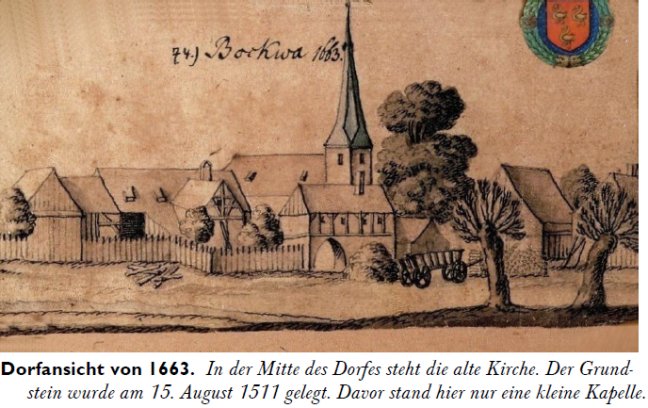 74.) Bockwa 1663.
Dorfansicht von 1663. In der Mitte des Dorfes steht die alte Kirche. Der Grund-
stein wurde am 15. August 1511 gelegt. Davor stand hier nur eine kleine Kapelle.